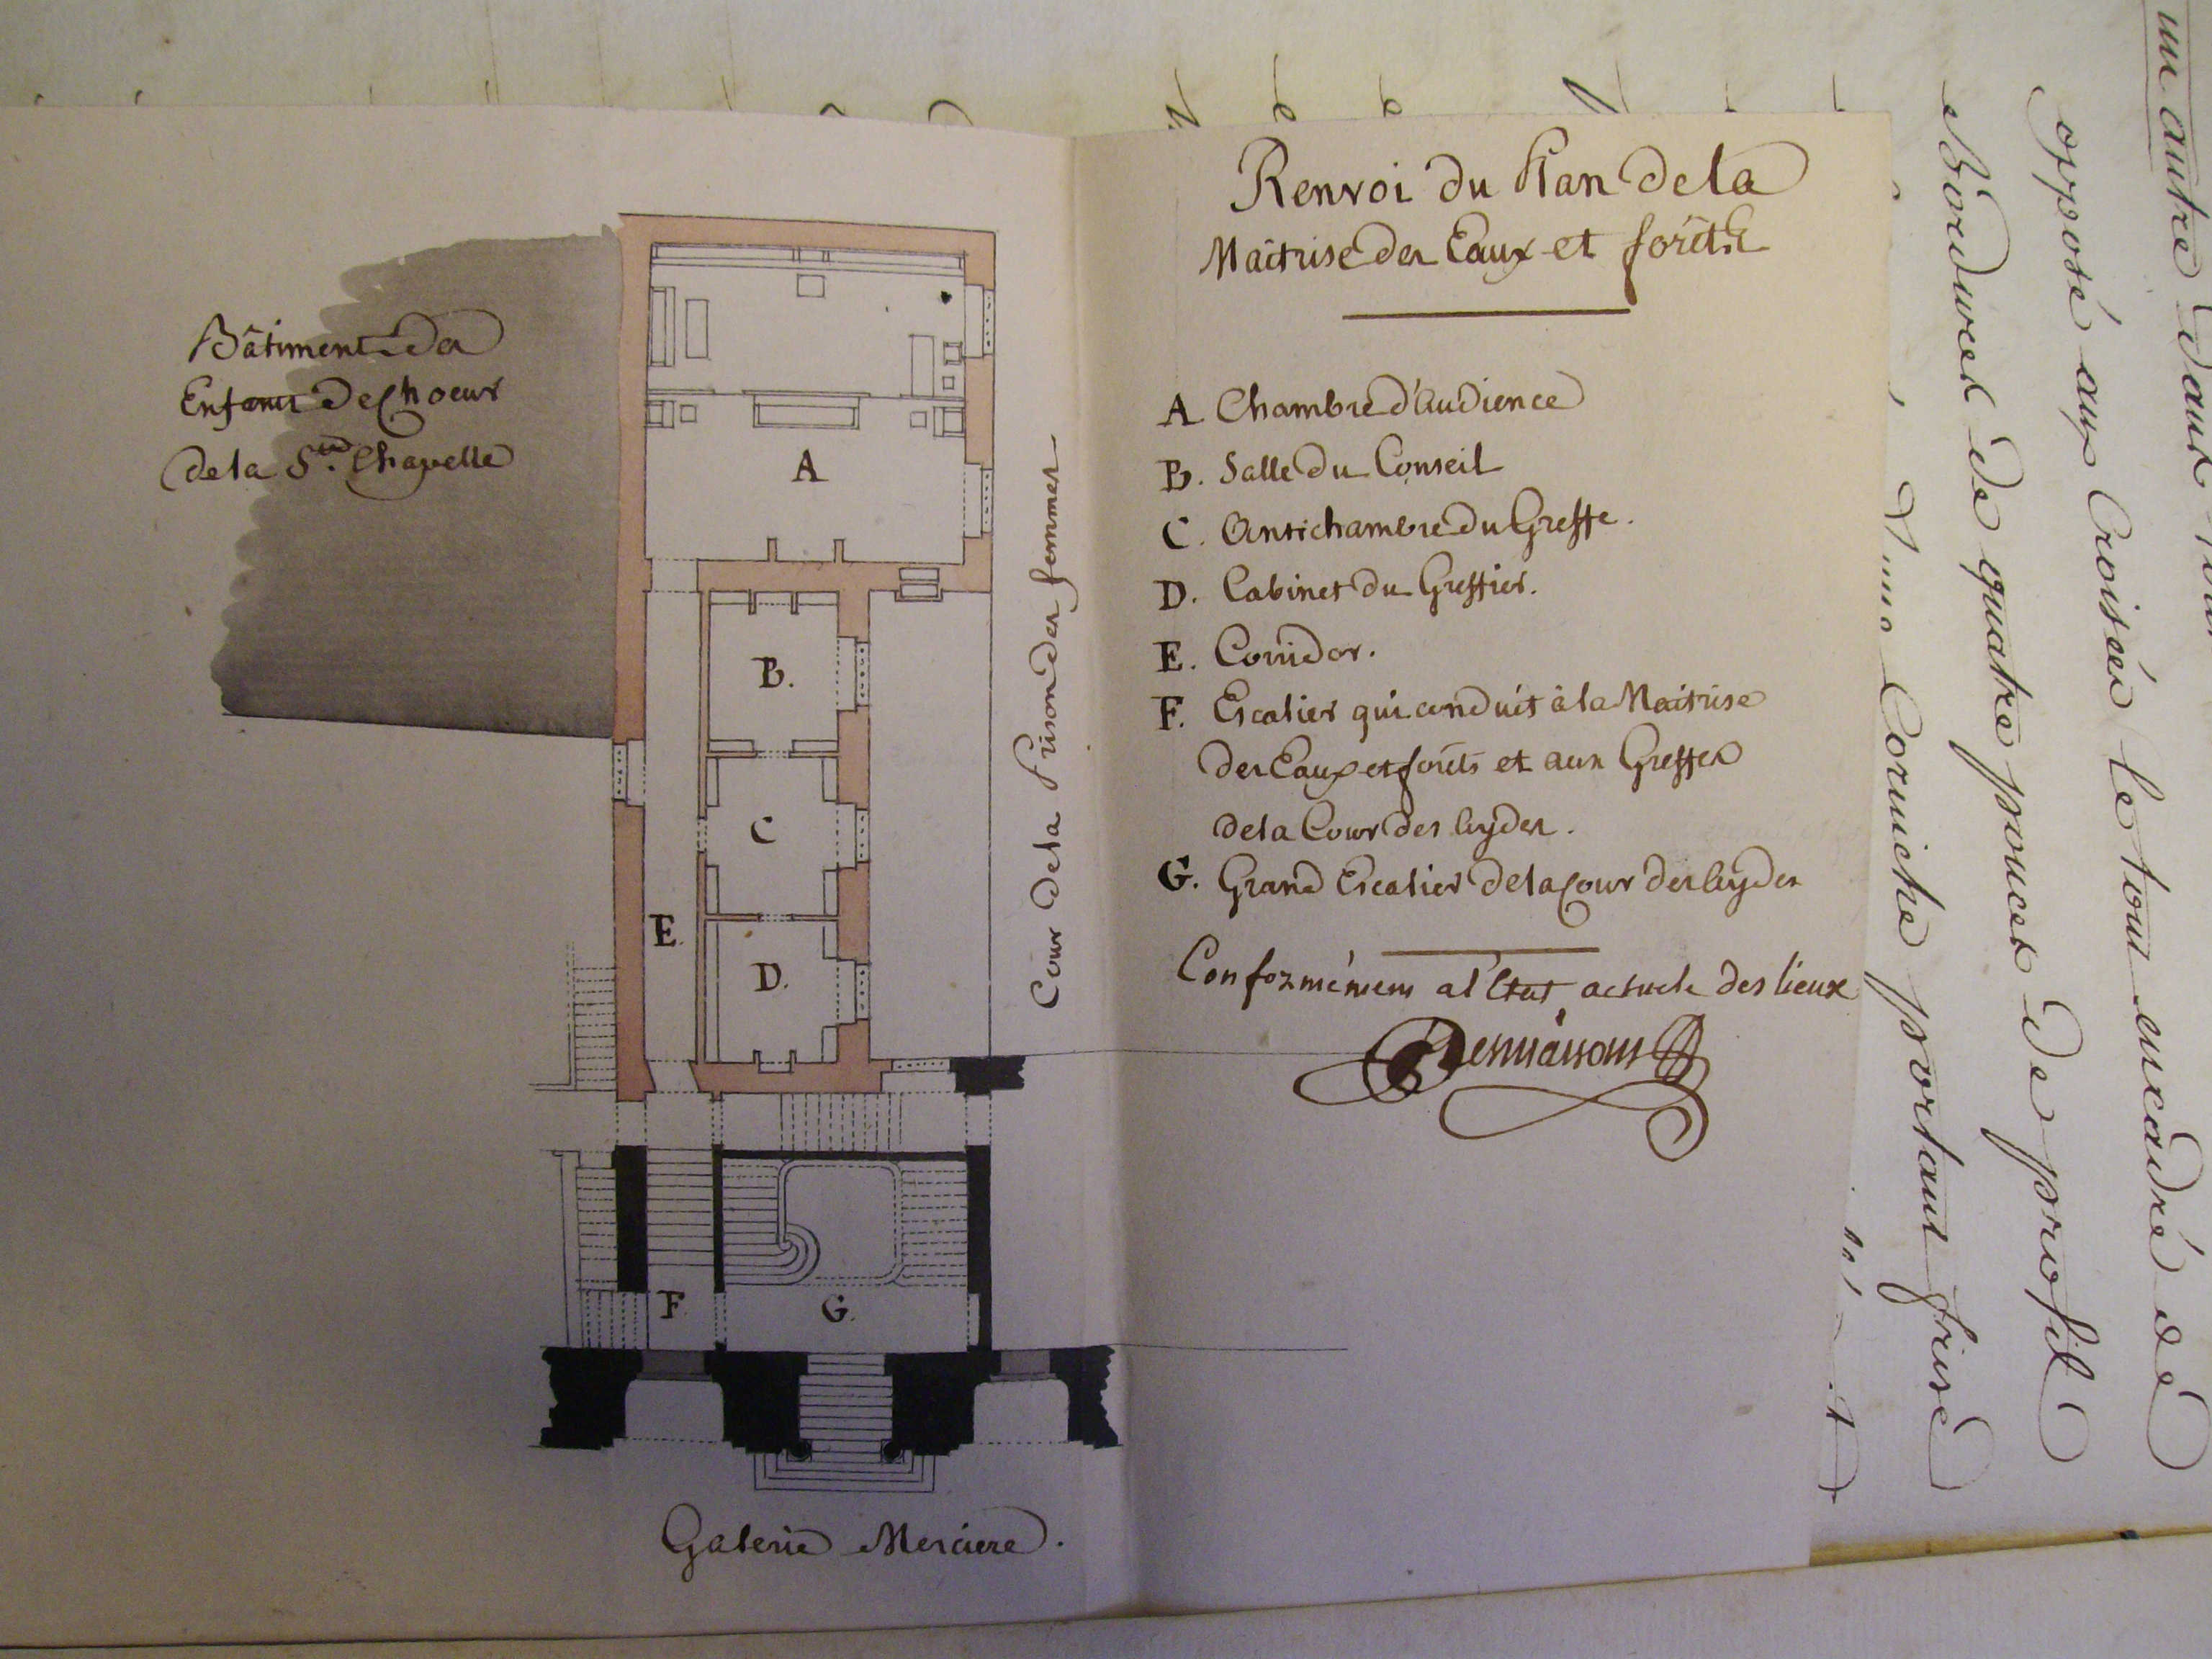 Bâtiment des
Enfants de Choeur
de la Ste. Chapelle
A
B.
C
D.
E.
F.
G.
Cour de la Prison des femmes
Galerie Merciere.
Renvoi du Plan de la
Maîtrise des Eaux et forêts
A Chambre d'audience
B. Salle du Conseil
C. Antichambre du Greffe.
D. Cabinet du Greffier.
E. Corridor.
F. Escalier qui conduit à la Maitrise
des Eaux et forêts et aux Greffes
de la Cour des Aydes.
G. Grand Escalier de la Cour des Aydes
Conformément a l'Etat actuele des lieux
Desmaisons
un autre dans
opposé aux Croisées le tout encadré de
Bordures de quatre pouces de profil
Corniche portant frise